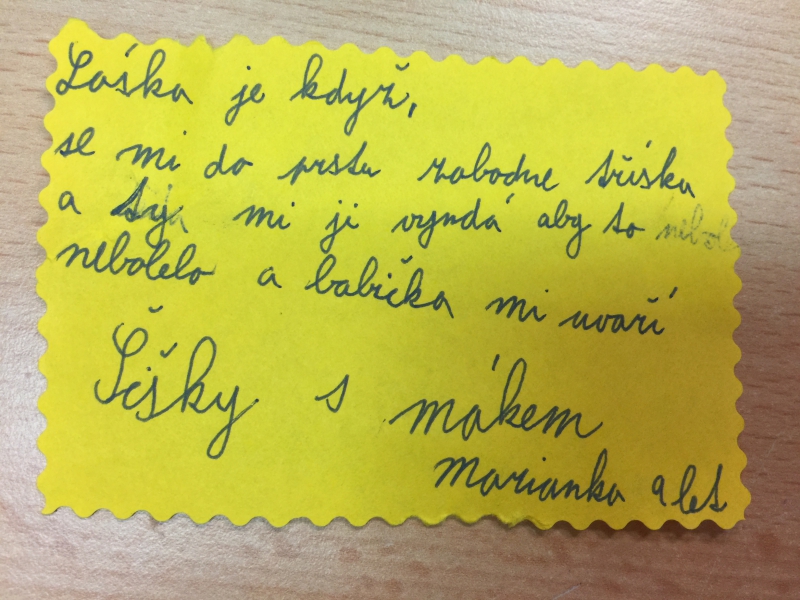 Láska je když,
se mi do prstu zabodne tříska
a mi ji vyndá aby to nebol
nebolelo a babička mi uvaří
Šišky s mákem
Marianka 9 let